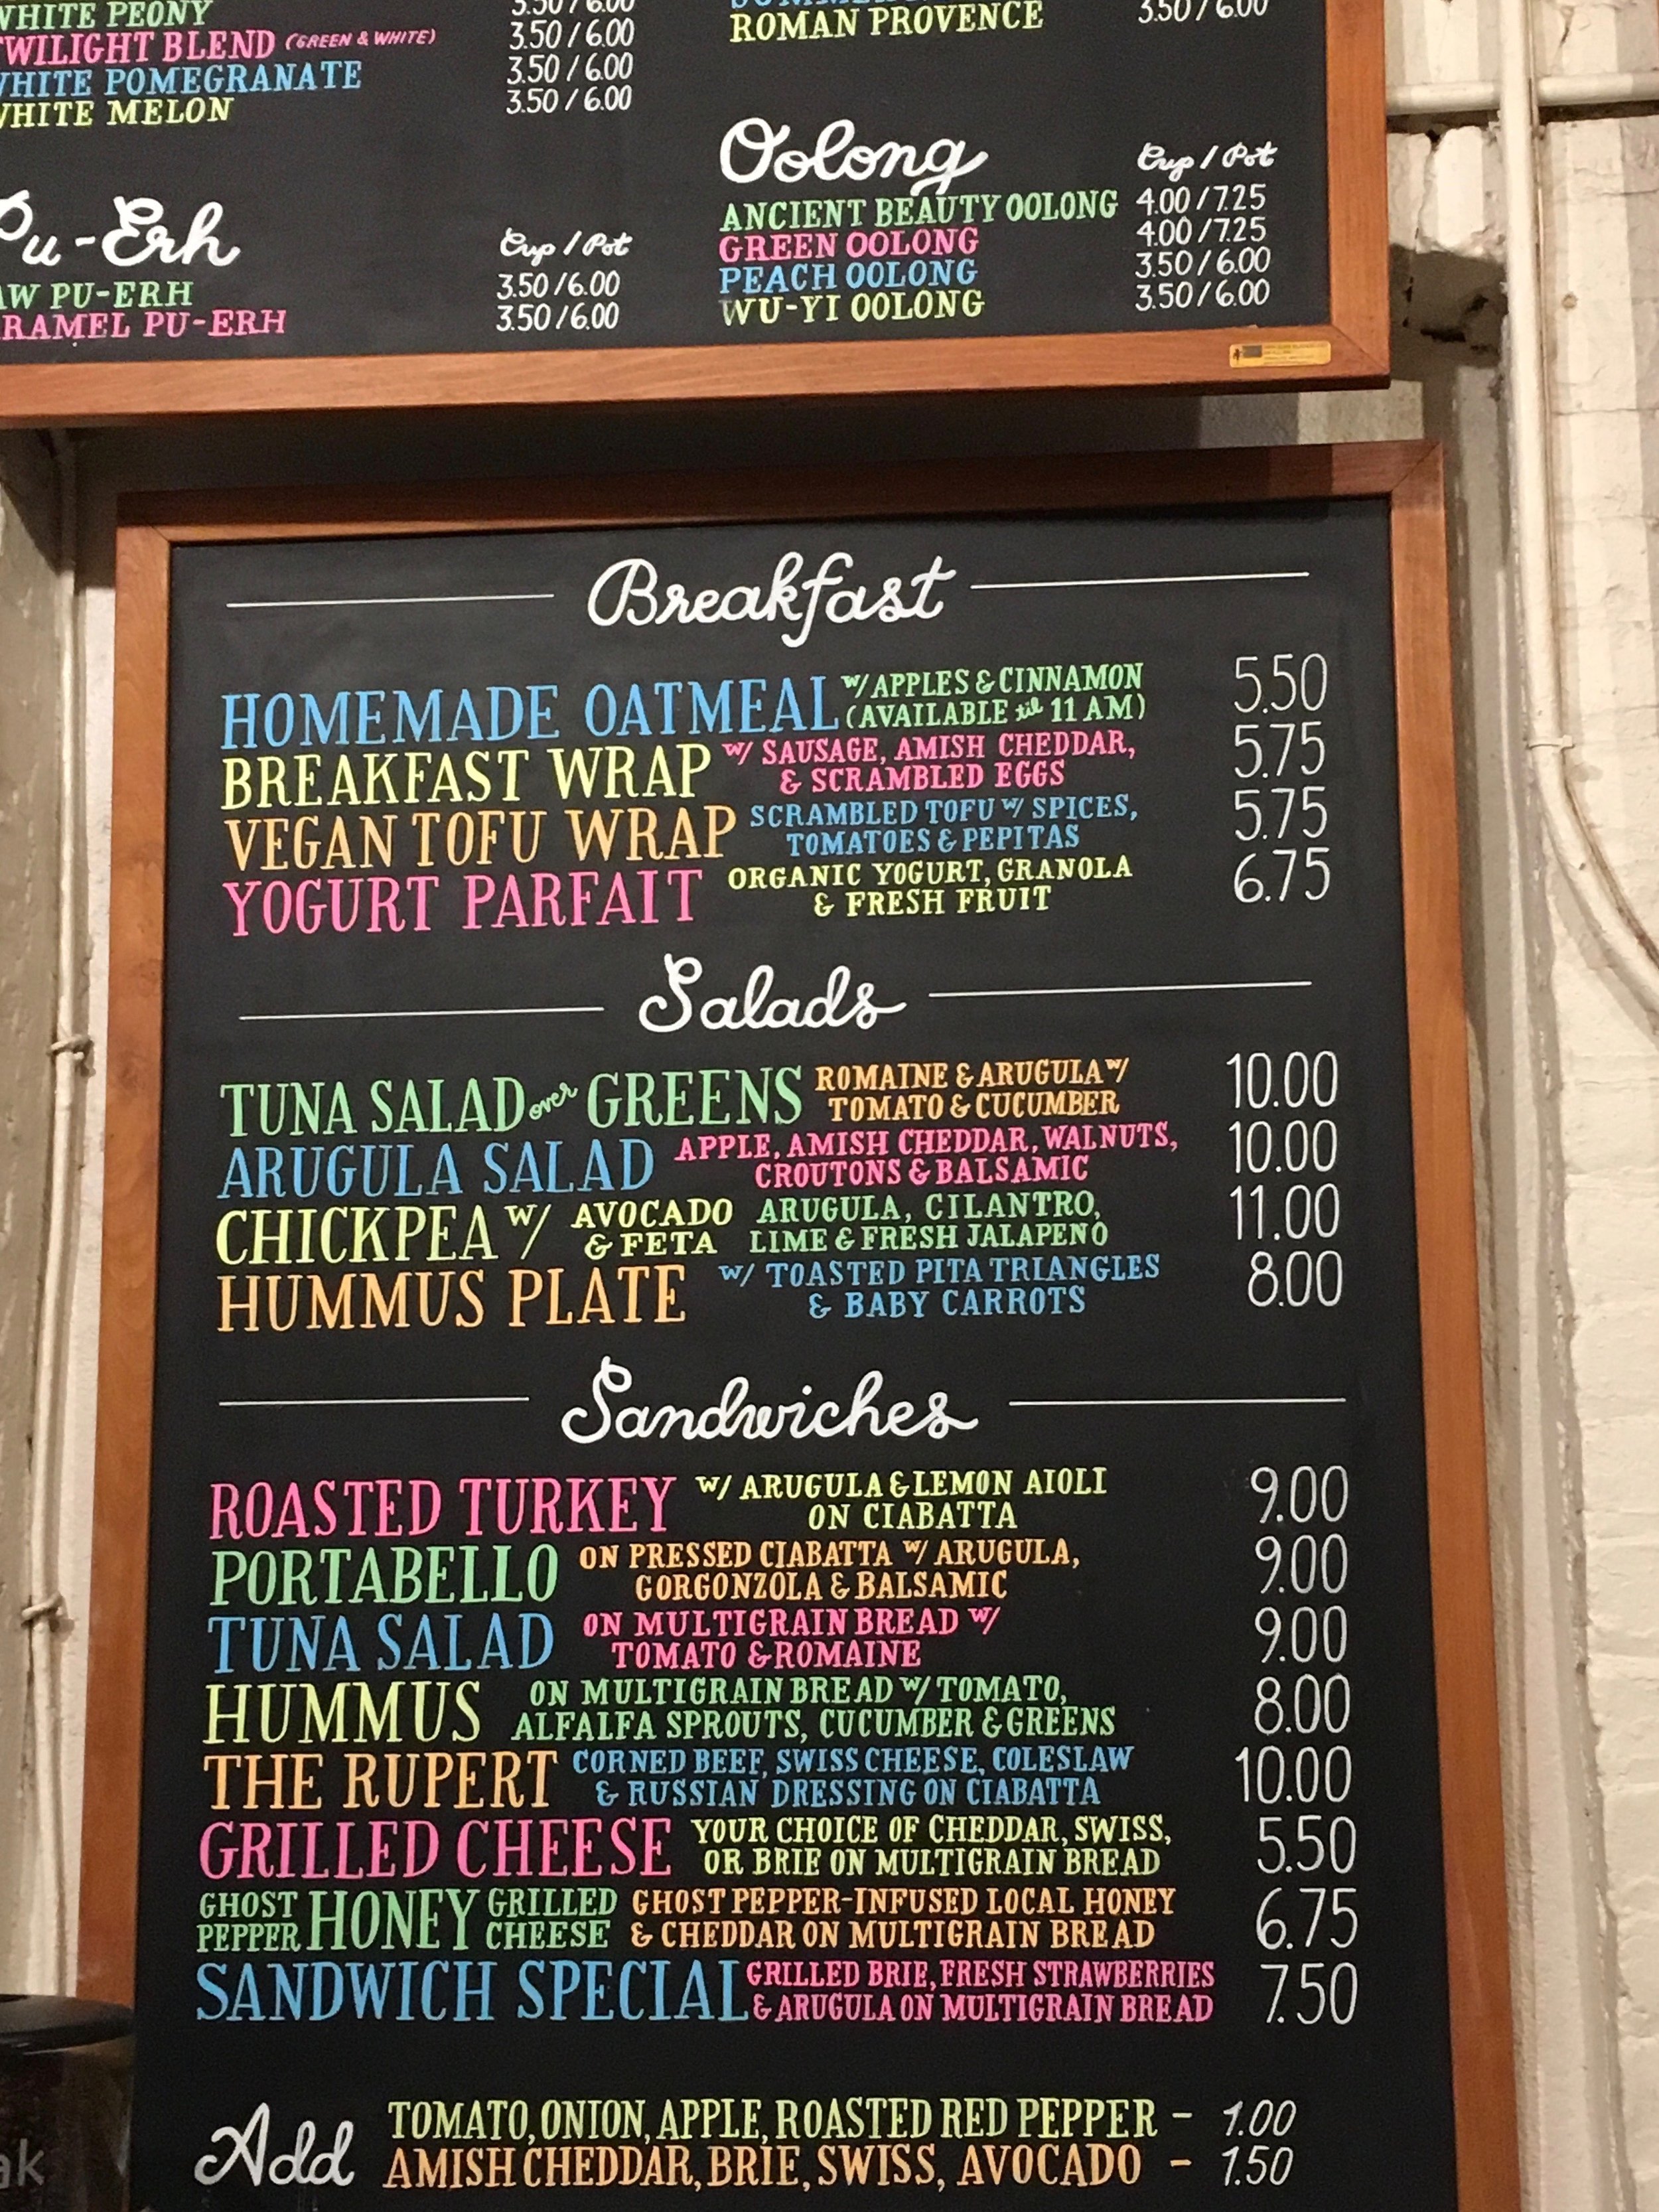 WHITE PEONY 3.50 / 6.00
TWILIGHT BLEND (GREEN & WHITE) 3.50 / 6.00
WHITE POMEGRANATE 3.50 / 6.00
WHITE MELON 3.50 / 6.00
Pu-Erh Cup / Pot
AW PU-ERH 3.50 / 6.00
RAMEL PU-ERH 3.50 / 6.00
ROMAN PROVENCE 3.50 / 6.00
Oolong Cup / Pot
ANCIENT BEAUTY OOLONG 4.00 / 7.25
GREEN OOLONG 4.00 / 7.25
PEACH OOLONG 3.50 / 6.00
WU-YI OOLONG 3.50 / 6.00
Breakfast
HOMEMADE OATMEAL W/ APPLES & CINNAMON 5.50
(AVAILABLE til 11 AM)
BREAKFAST WRAP W/ SAUSAGE, AMISH CHEDDAR, 5.75
& SCRAMBLED EGGS
VEGAN TOFU WRAP SCRAMBLED TOFU W/ SPICES, 5.75
TOMATOES & PEPITAS
YOGURT PARFAIT ORGANIC YOGURT, GRANOLA 6.75
& FRESH FRUIT
Salads
TUNA SALAD over GREENS ROMAINE & ARUGULA W/ 10.00
TOMATO & CUCUMBER
ARUGULA SALAD APPLE, AMISH CHEDDAR, WALNUTS, 10.00
CROUTONS & BALSAMIC
CHICKPEA W/ AVOCADO & FETA ARUGULA, CILANTRO, 11.00
LIME & FRESH JALAPENO
HUMMUS PLATE W/ TOASTED PITA TRIANGLES 8.00
& BABY CARROTS
Sandwiches
ROASTED TURKEY W/ ARUGULA & LEMON AIOLI 9.00
ON CIABATTA
PORTABELLO ON PRESSED CIABATTA W/ ARUGULA, 9.00
GORGONZOLA & BALSAMIC
TUNA SALAD ON MULTIGRAIN BREAD W/ 9.00
TOMATO & ROMAINE
HUMMUS ON MULTIGRAIN BREAD W/ TOMATO, 8.00
ALFALFA SPROUTS, CUCUMBER & GREENS
THE RUPERT CORNED BEEF, SWISS CHEESE, COLESLAW 10.00
& RUSSIAN DRESSING ON CIABATTA
GRILLED CHEESE YOUR CHOICE OF CHEDDAR, SWISS, 5.50
OR BRIE ON MULTIGRAIN BREAD
GHOST PEPPER HONEY GRILLED CHEESE GHOST PEPPER-INFUSED LOCAL HONEY 6.75
& CHEDDAR ON MULTIGRAIN BREAD
SANDWICH SPECIAL GRILLED BRIE, FRESH STRAWBERRIES 7.50
& ARUGULA ON MULTIGRAIN BREAD
Add TOMATO, ONION, APPLE, ROASTED RED PEPPER - 1.00
AMISH CHEDDAR, BRIE, SWISS, AVOCADO - 1.50
ak